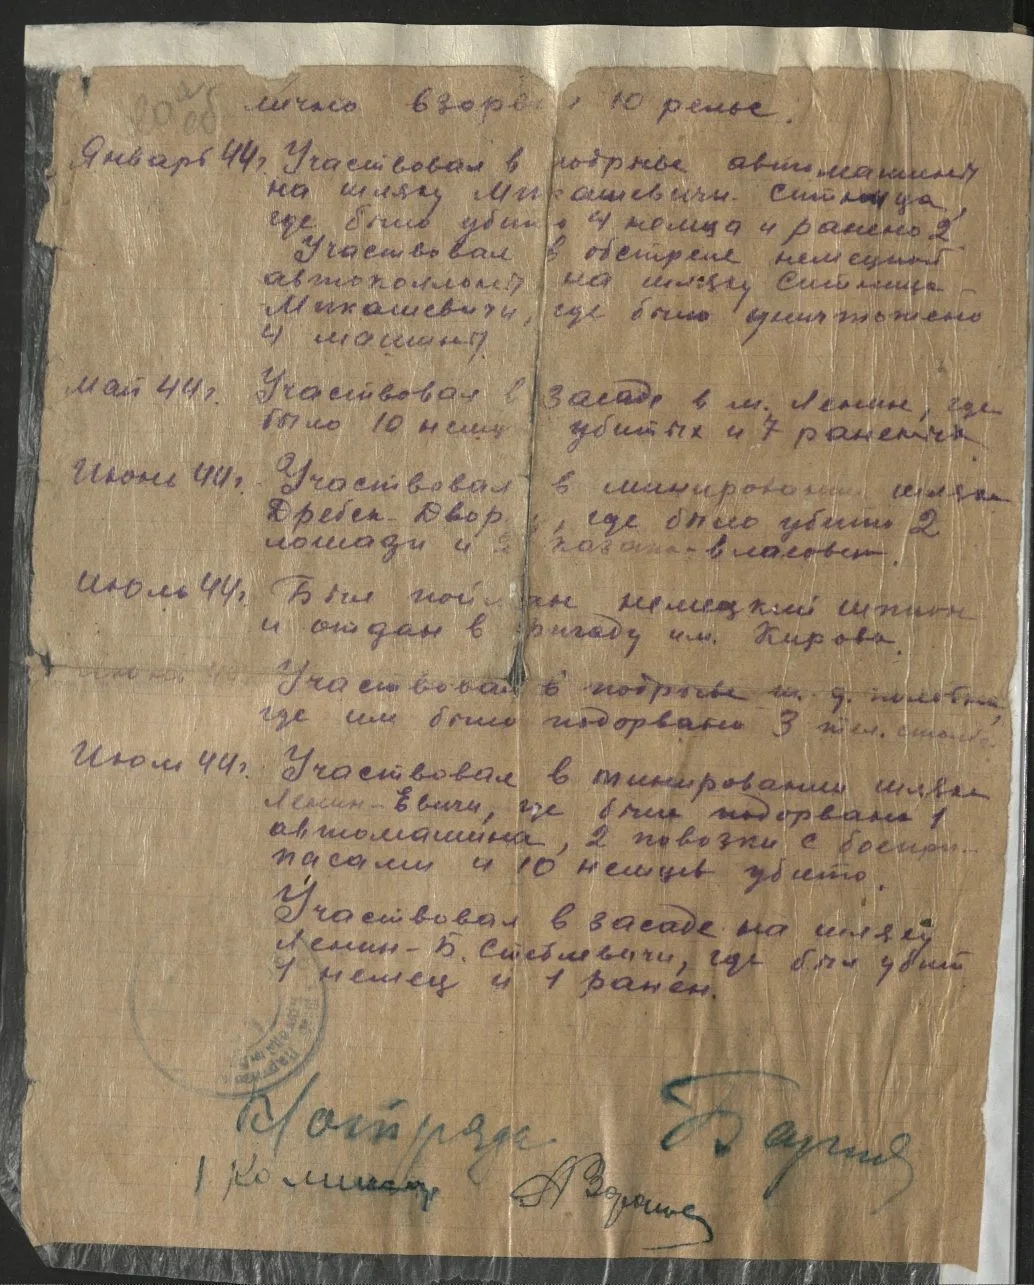 лично взорва 10 рельс.
Январь 44 г. Участвовал в подрыве автомашины
на шляху Микашевичи-Ситница,
где было убито 4 немца и ранено 2.
Участвовал в обстреле немецкой
автоколлоны на шляху Ситница-
Микашевичи, где было уничтожено
4 машины.
Май 44 г. Участвовал в засаде в м. Ленин, где
было 10 немц убитых и 7 раненых
Июнь 44 г. Участвовал в минировании шляха
Дребск-Двор, где было убито 2
лошади и казака-власовца.
Июль 44 г. Был пойман немецкий шпион
и отдан в бригаду им. Кирова.
Участвовал в подрыве ж. д. полотна,
где им было подорвано 3 тел. столба.
Июль 44 г. Участвовал в минировании шляха
Ленин-Евичи, где были подорвана 1
автомашина, 2 повозки с боепри-
пасами и 10 немцев убито.
Участвовал в засаде на шляху
Ленин-Б. Стеблевичи, где был убит
1 немец и 1 ранен.
К/отряда
Комиссар